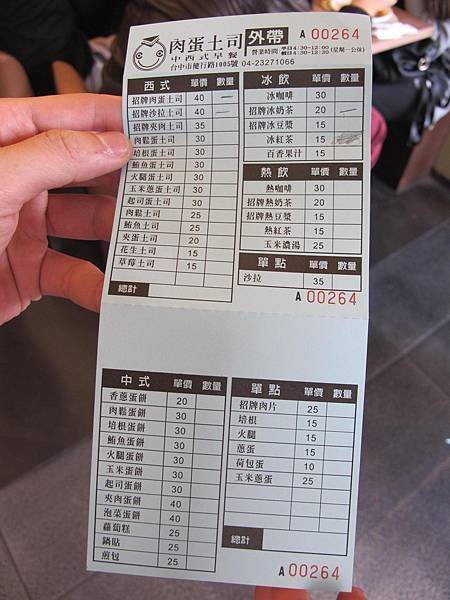 肉蛋土司 外帶 A 00264
中西式早餐 營業時間
台中市健行路1005號 04-23271066
西式 單價 數量
招牌肉蛋土司 40 一
招牌沙拉土司 40 一
招牌夾肉土司 35
肉鬆蛋土司 30
培根蛋土司 30
鮪魚蛋土司 30
火腿蛋土司 30
玉米蔥蛋土司 30
起司蛋土司 30
肉鬆土司 25
鮪魚土司 25
夾蛋土司 20
花生土司 15
草莓土司 15
總計
冰飲 單價 數量
冰咖啡 30
招牌冰奶茶 20 一
招牌冰豆漿 15
冰紅茶 15
百香果汁 15
熱飲 單價 數量
熱咖啡 30
招牌熱奶茶 20
招牌熱豆漿 15
熱紅茶 15
玉米濃湯 25
單點 單價 數量
沙拉 35
A 00264
中式 單價 數量
香蔥蛋餅 20
肉鬆蛋餅 30
培根蛋餅 30
鮪魚蛋餅 30
火腿蛋餅 30
玉米蛋餅 30
起司蛋餅 30
夾肉蛋餅 40
泡菜蛋餅 40
蘿蔔糕 25
鍋貼 25
煎包 25
單點 單價 數量
招牌肉片 25
培根 15
火腿 15
蔥蛋 15
荷包蛋 10
玉米蔥蛋 25
總計
A 00264